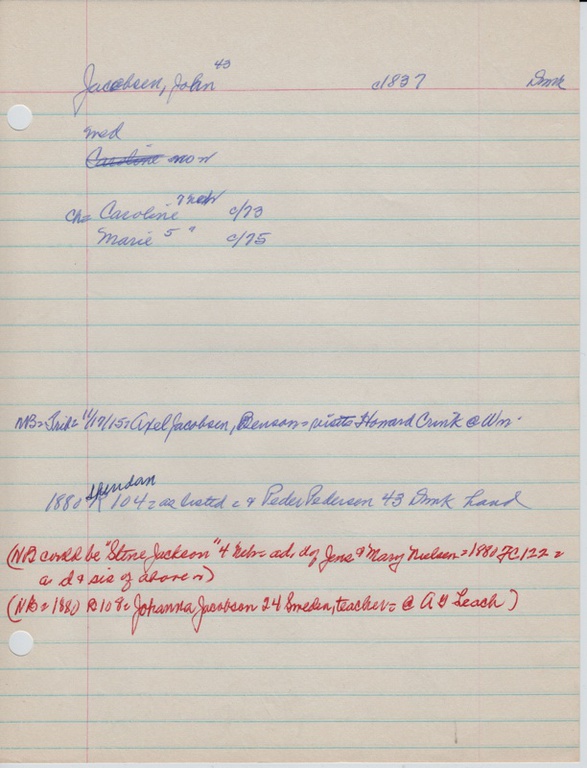 Jacobsen, John 43 c1837 Dmk
wed
Caroline now
ch= Caroline 7 neb c/73
Marie 5 " c/75
NB= Trib= 11/17/15= Axel Jacobsen, Benson= visits Howard Crink @ Wn.
Sheridan
1880 104= as listed = & Peder Pederson 43 Dmk Land
(NB could be "Stene Jackson" 4 Neb= ad. d of Jens & Mary Nielsen= 1880 FC 122 =
a d & sis of above n)
(NB= 1880 B 108= Johanna Jacobson 24 Sweden, teacher= @ A G Leach)